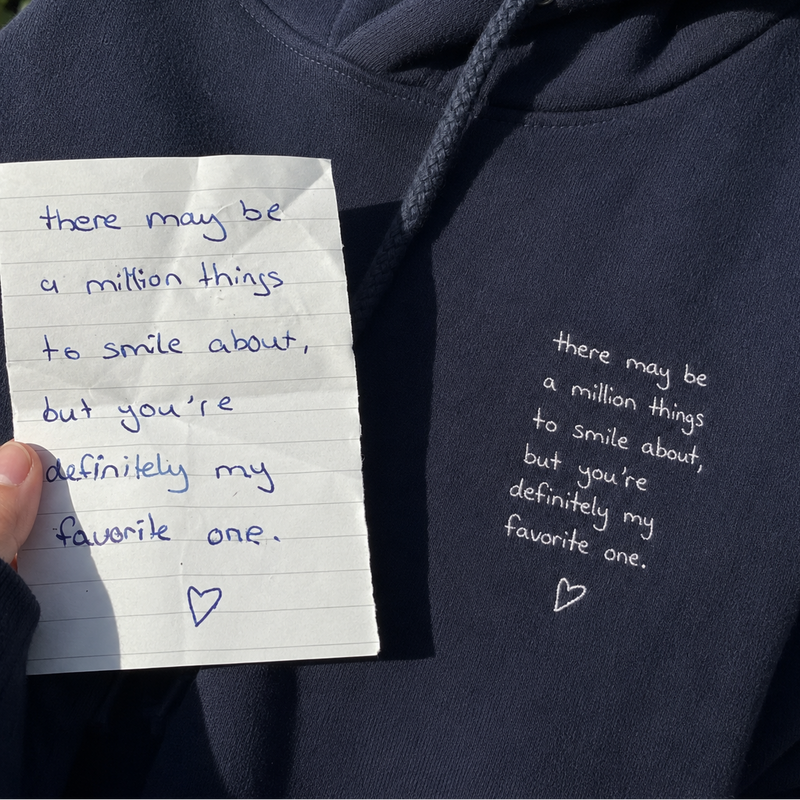 there may be
a million things
to smile about,
but you're
definitely my
favorite one.
there may be
a million things
to smile about,
but you're
definitely my
favorite one.